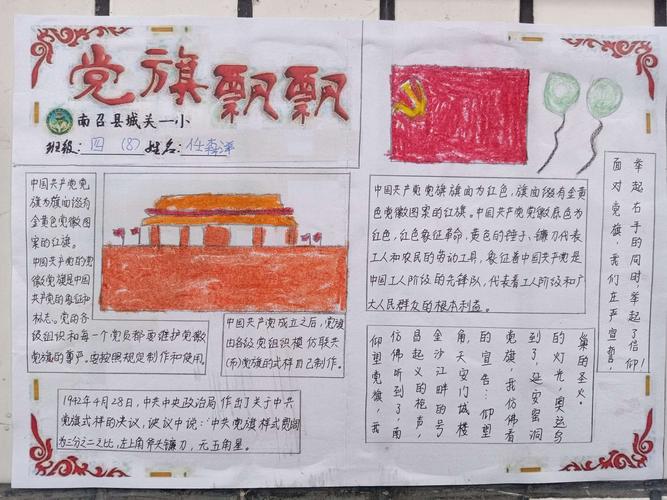 党旗飘飘
南召县城关一小
班级：四（8）姓名：任森泽
中国共产党党
旗为旗面缀有
金黄色党徽图
案的红旗。
中国共产党的党
徽党旗是中国
共产党的象征和
标志。党的各
级组织和每一个党员都要维护党徽
党旗的尊严。要按照规定制作和使用。
中国共产党成立之后，党旗
由各级党组织模仿联共
(布)党旗的式样自己制作。
1942年4月28日，中共中央政治局作出了关于中共
党旗式样的决议，决议中说："中共党旗式样宽阔
为三分之二之比，左上角斧头镰刀，元五角星。
中国共产党党旗旗面为红色，旗面缀有金黄
色党徽图案的红旗。中国共产党党徽底色为
红色，红色象征革命，黄色的锤子、镰刀代表
工人和农民的劳动工具，象征着中国共产党是
中国工人阶级的先锋队，代表着工人阶级和广
大人民群众的根本利益。
仰望党旗，我
仿佛听到了，南
昌起义的枪声，
金沙江畔的号
角，天安门城楼
的宣告：仰望
党旗，我仿佛看
到了，延安窑洞
的灯光，奥运鸟
巢的圣火。
面对党旗，我们庄严宣誓，
举起右手的同时，举起了信仰！